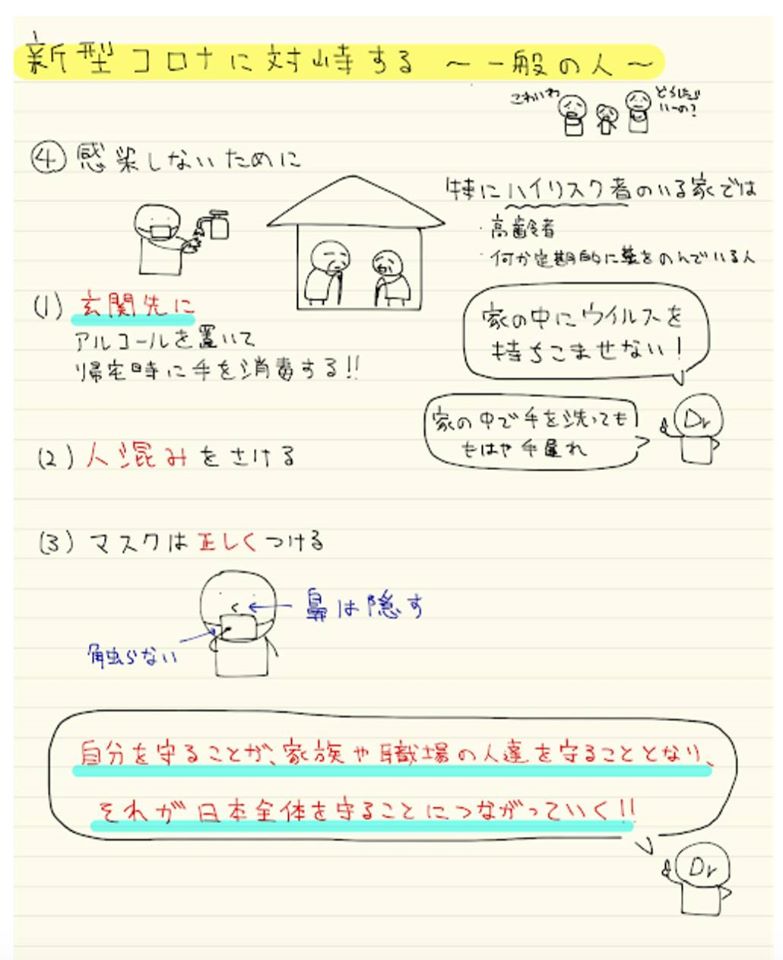 新型コロナに対峙する 〜一般の人〜
こわいわ
どうしたら
いーの?
④ 感染しないために
特にハイリスク者のいる家では
・高齢者
・何か定期的に薬をのんでいる人
(1) 玄関先に
アルコールを置いて
帰宅時に手を消毒する!!
家の中にウイルスを
持ちこませない!
家の中で手を洗っても
もはや手遅れ
Dr
(2) 人混みをさける
(3) マスクは正しくつける
鼻は隠す
触らない
自分を守ることが、家族や職場の人達を守ることとなり、
それが日本全体を守ることにつながっていく!!
Dr